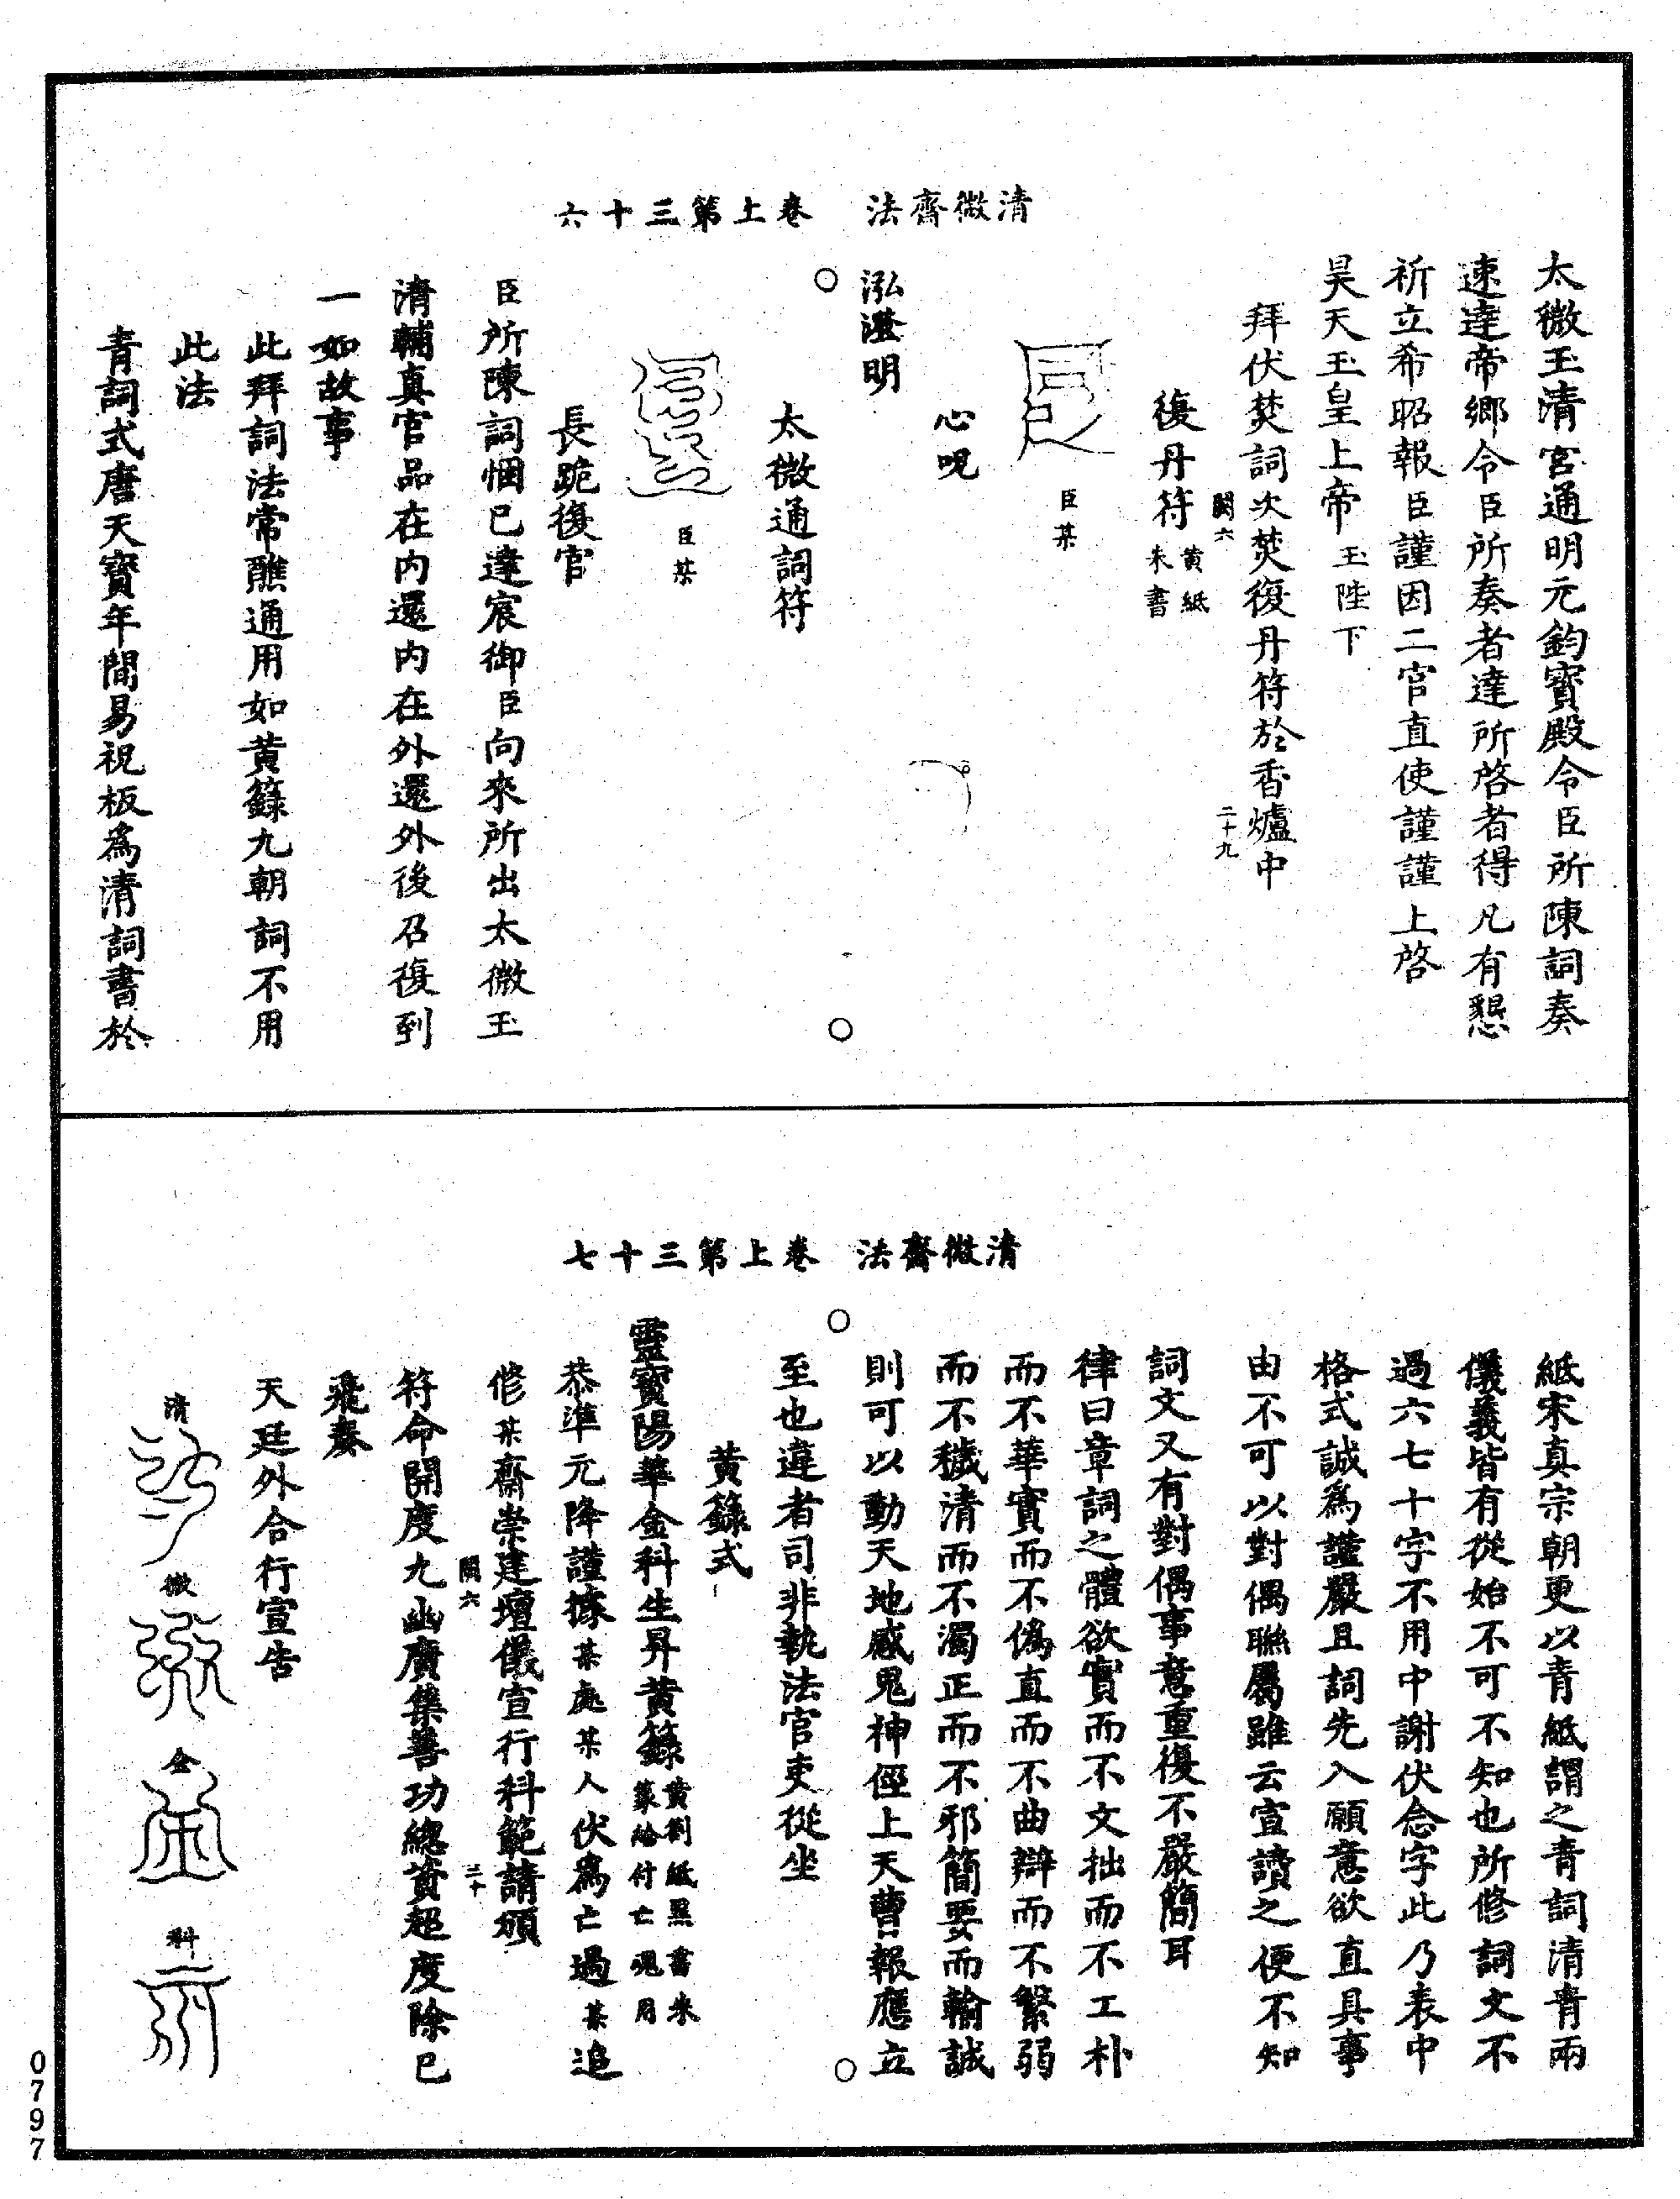 清微齋法　卷上第三十六
太微玉清宮通明元鈞寶殿令臣所陳詞奏
速達帝鄉令臣所奏者達所啓者得凡有懇
祈立希昭報臣謹因二官直使謹謹上啓
昊天玉皇上帝玉陛下
拜伏焚詞次焚復丹符於香爐中
闕六　二十九
復丹符黃紙朱書
臣某
心呪
泓澄明
太微通詞符
臣某
長跪復官
臣所陳詞悃已達宸御臣向來所出太微玉
清輔真官品在內還內在外還外後召復到
一如故事
此拜詞法常醮通用如黃籙九朝詞不用
此法
青詞式唐天寶年間易祝板爲清詞書於
清微齋法　卷上第三十七
紙宋真宗朝更以青紙謂之青詞清青兩
儀義皆有從始不可不知也所修詞文不
過六七十字不用中謝伏念字此乃表中
格式誠爲謹嚴且詞先入願意欲直具事
由不可以對偶聯屬雖云宣讀之便不知
詞文又有對偶事意重復不嚴簡耳
律曰章詞之體欲實而不文拙而不工朴
而不華實而不僞直而不曲辯而不繁弱
而不穢清而不濁正而不邪簡要而輸誠
則可以動天地感鬼神徑上天曹報應立
至也違者司非執法官吏從坐
黃籙式
靈寶陽華金科生昇黃籙黃劄紙黑書朱篆給付亡魂用
恭準元降謹據某處某人伏爲亡過某追
修某齋崇建壇儀宣行科範請頒
闕六　三十
符命開度九幽廣集善功總資超度除已
飛奏
天廷外合行宣告
清
微
金
科
0797